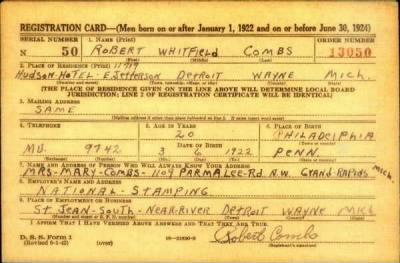 REGISTRATION CARD—(Men born on or after January 1, 1922 and on or before June 30, 1924)
SERIAL NUMBER 1. NAME (Print) ORDER NUMBER
N 50 ROBERT WHITFIELD COMBS 13050
(First) (Middle) (Last)
2. PLACE OF RESIDENCE (Print) 11719
HUDSON-HOTEL-E. JEFFERSON DETROIT WAYNE MICH.
(Number and street) (Town, township, village, or city) (County) (State)
[THE PLACE OF RESIDENCE GIVEN ON THE LINE ABOVE WILL DETERMINE LOCAL BOARD
JURISDICTION; LINE 2 OF REGISTRATION CERTIFICATE WILL BE IDENTICAL]
3. MAILING ADDRESS
SAME
4. TELEPHONE 5. AGE IN YEARS 6. PLACE OF BIRTH
20 PHILADELPHIA
DATE OF BIRTH (Town or county)
MU. 9742 3 6 1922 PENN.
(Exchange) (Number) (Mo.) (Day) (Yr.) (State or country)
7. NAME AND ADDRESS OF PERSON WHO WILL ALWAYS KNOW YOUR ADDRESS
MRS-MARY-COMBS-1109 PARMALEE-Rd N.W. GRAND-RAPIDS MICH
8. EMPLOYER'S NAME AND ADDRESS
NATIONAL-STAMPING
9. PLACE OF EMPLOYMENT OR BUSINESS
ST JEAN-SOUTH-NEAR-RIVER DETROIT WAYNE MICH
(Number and street or R. F. D. number) (Town) (County) (State)
I AFFIRM THAT I HAVE VERIFIED ABOVE ANSWERS AND THAT THEY ARE TRUE.
D. S. S. Form 1
(over) Robert Combs
(Registrant's signature)